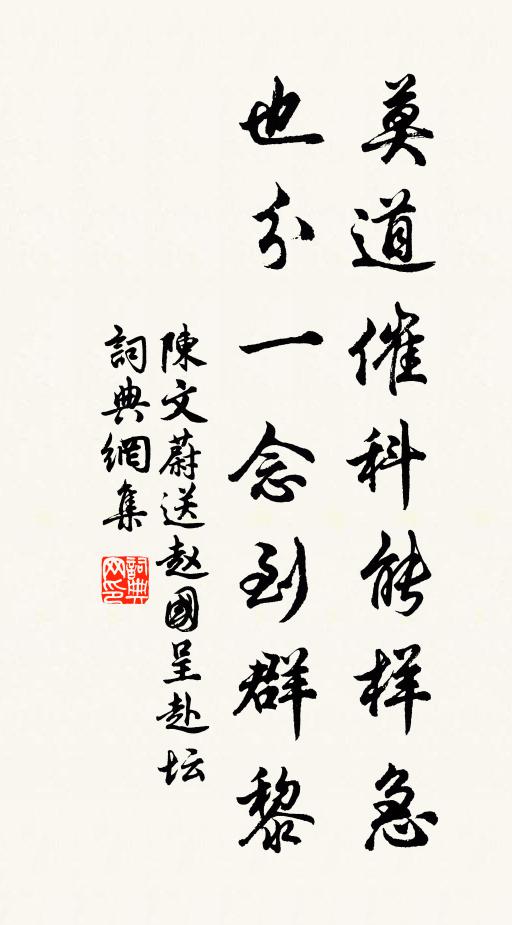 莫道催科能样急
也分一念到群黎
陳文蔚送赵國呈赴坛
詞典網集
詞典网印